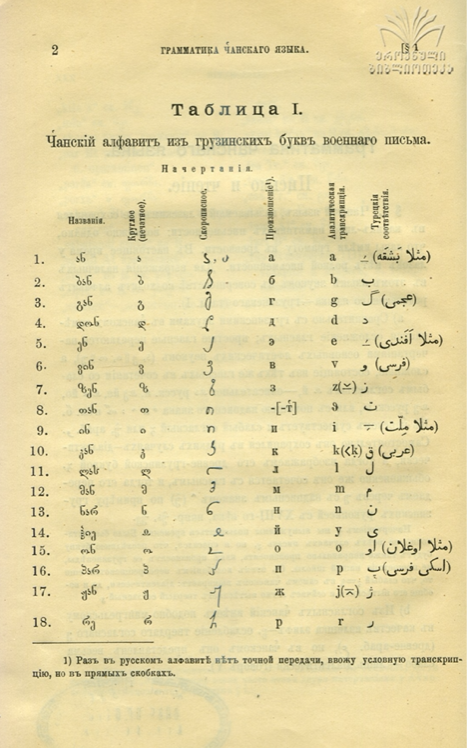 2 ГРАММАТИКА Ч́АНСКАГО ЯЗЫКА. [§ 1
ეროვნული
ბიბლიოთეკა
Таблица I.
Ч́анскій алфавитъ изъ грузинскихъ буквъ военнаго письма.
Начертанія.
Названія. Круглое (печатное). Скорописное. Произношеніе¹). Аналитическая транскрипція. Турецкія соотвѣтствія.
1. ან ა а a (مثلا بَشقَه)
2. ბან ბ б b ب
3. გან გ г g گ (عجمى)
4. დონ დ д d د
5. ენ ე э e (مثلا آفندى)
6. ვინ ვ в v و (فرسى)
7. ზენ ზ з z(⁓) ز
8. თან თ -[-т́] ت
9. ინ ი и i (مثلا مِلّت)
10. კან კ к k(<ḳ) ق (عربى)
11. ლას ლ л l ل
12. მან მ м m م
13. ნარ ნ н n ن
14. й y ى
15. ონ ო о o او (مثلا اوغلان)
16. პარ პ п p پ (اسكى فرسى)
17. ჟან ჟ ж j ژ
18. რე რ р r ر
1) Разъ въ русскомъ алфавитѣ нѣтъ точной передачи, ввожу условную транскрип-
цію, но въ прямыхъ скобкахъ.